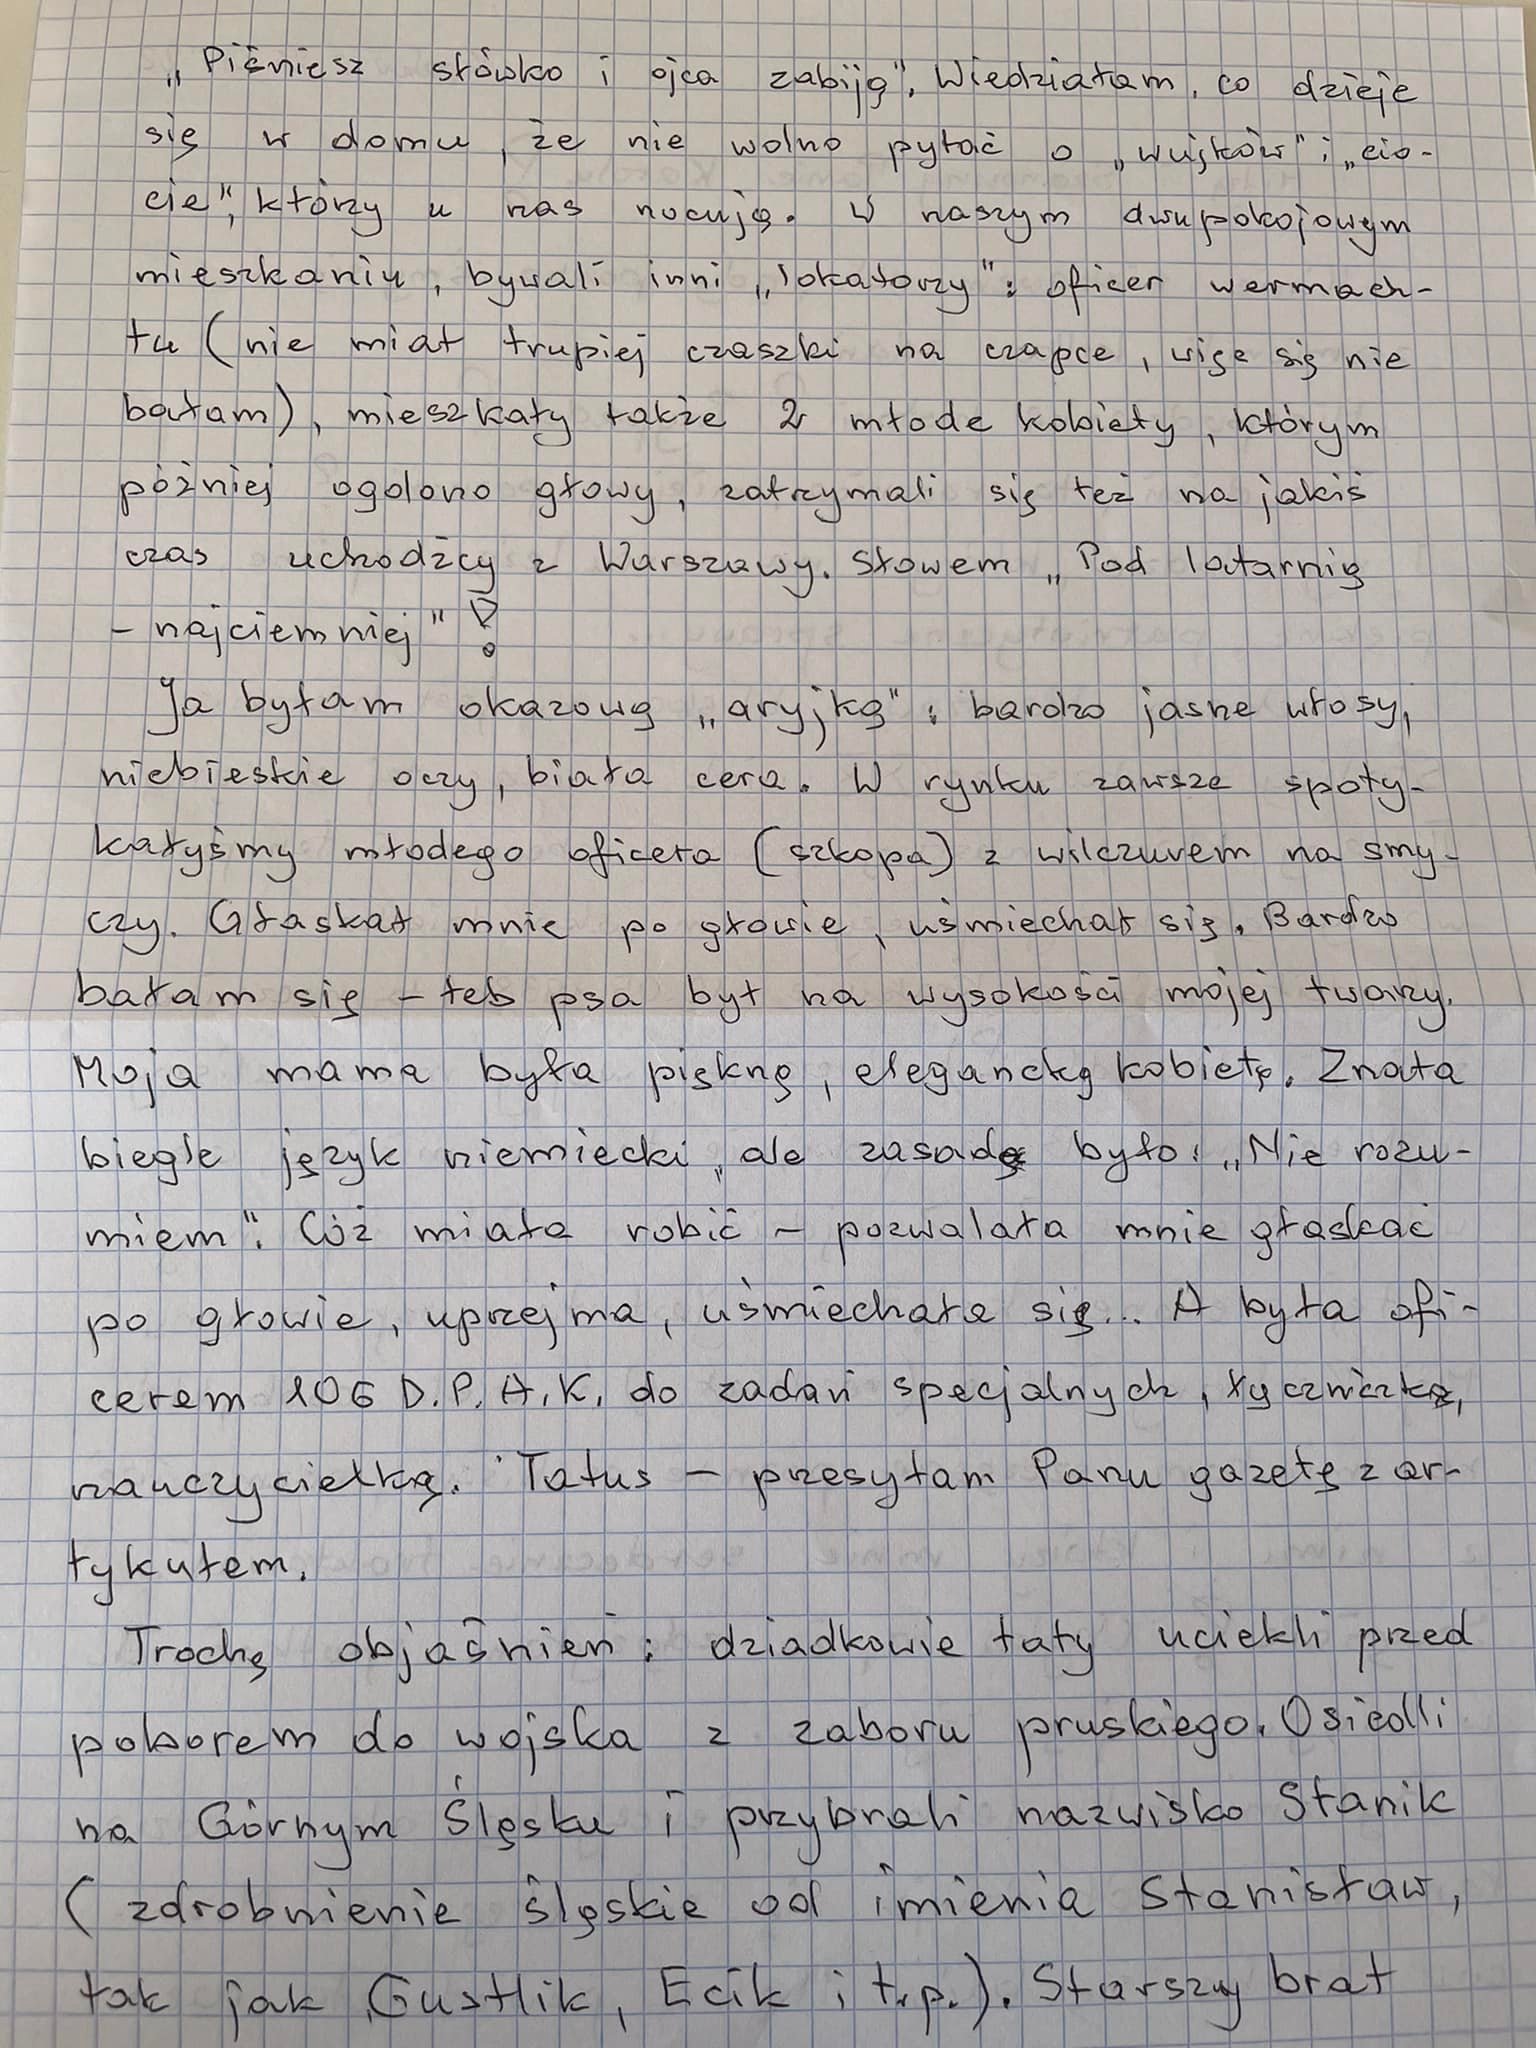 „Piśniesz słówko i ojca zabiją”. Wiedziałam, co dzieje
się w domu, że nie wolno pytać o „wujków” i „cio-
cie”, którzy u nas nocują. W naszym dwupokojowym
mieszkaniu, bywali inni „lokatorzy”: oficer wermach-
tu (nie miał trupiej czaszki na czapce, więc się nie
bałam), mieszkały także 2 młode kobiety, którym
później ogolono głowy, zatrzymali się też na jakiś
czas uchodźcy z Warszawy. Słowem „Pod latarnią
– najciemniej”!
Ja byłam okazową „aryjką”: bardzo jasne włosy,
niebieskie oczy, biała cera. W rynku zawsze spoty-
kałyśmy młodego oficera (szkopa) z wilczurem na smy-
czy. Głaskał mnie po głowie, uśmiechał się. Bardzo
bałam się – łeb psa był na wysokości mojej twarzy.
Moja mama była piękną, elegancką kobietą. Znała
biegle język niemiecki, ale zasadą było: „Nie rozu-
miem”. Cóż miała robić – pozwalała mnie głaskać
po głowie, uprzejma, uśmiechała się... A była ofi-
cerem 106 D.P.A.K. do zadań specjalnych, łączniczką,
nauczycielką. Tatuś – przesyłam Panu gazetę z ar-
tykułem.
Trochę objaśnień: dziadkowie taty uciekli przed
poborem do wojska z zaboru pruskiego. Osiedli
na Górnym Śląsku i przybrali nazwisko Stanik
(zdrobnienie śląskie od imienia Stanisław,
tak jak Gustlik, Ecik i t.p.). Starszy brat